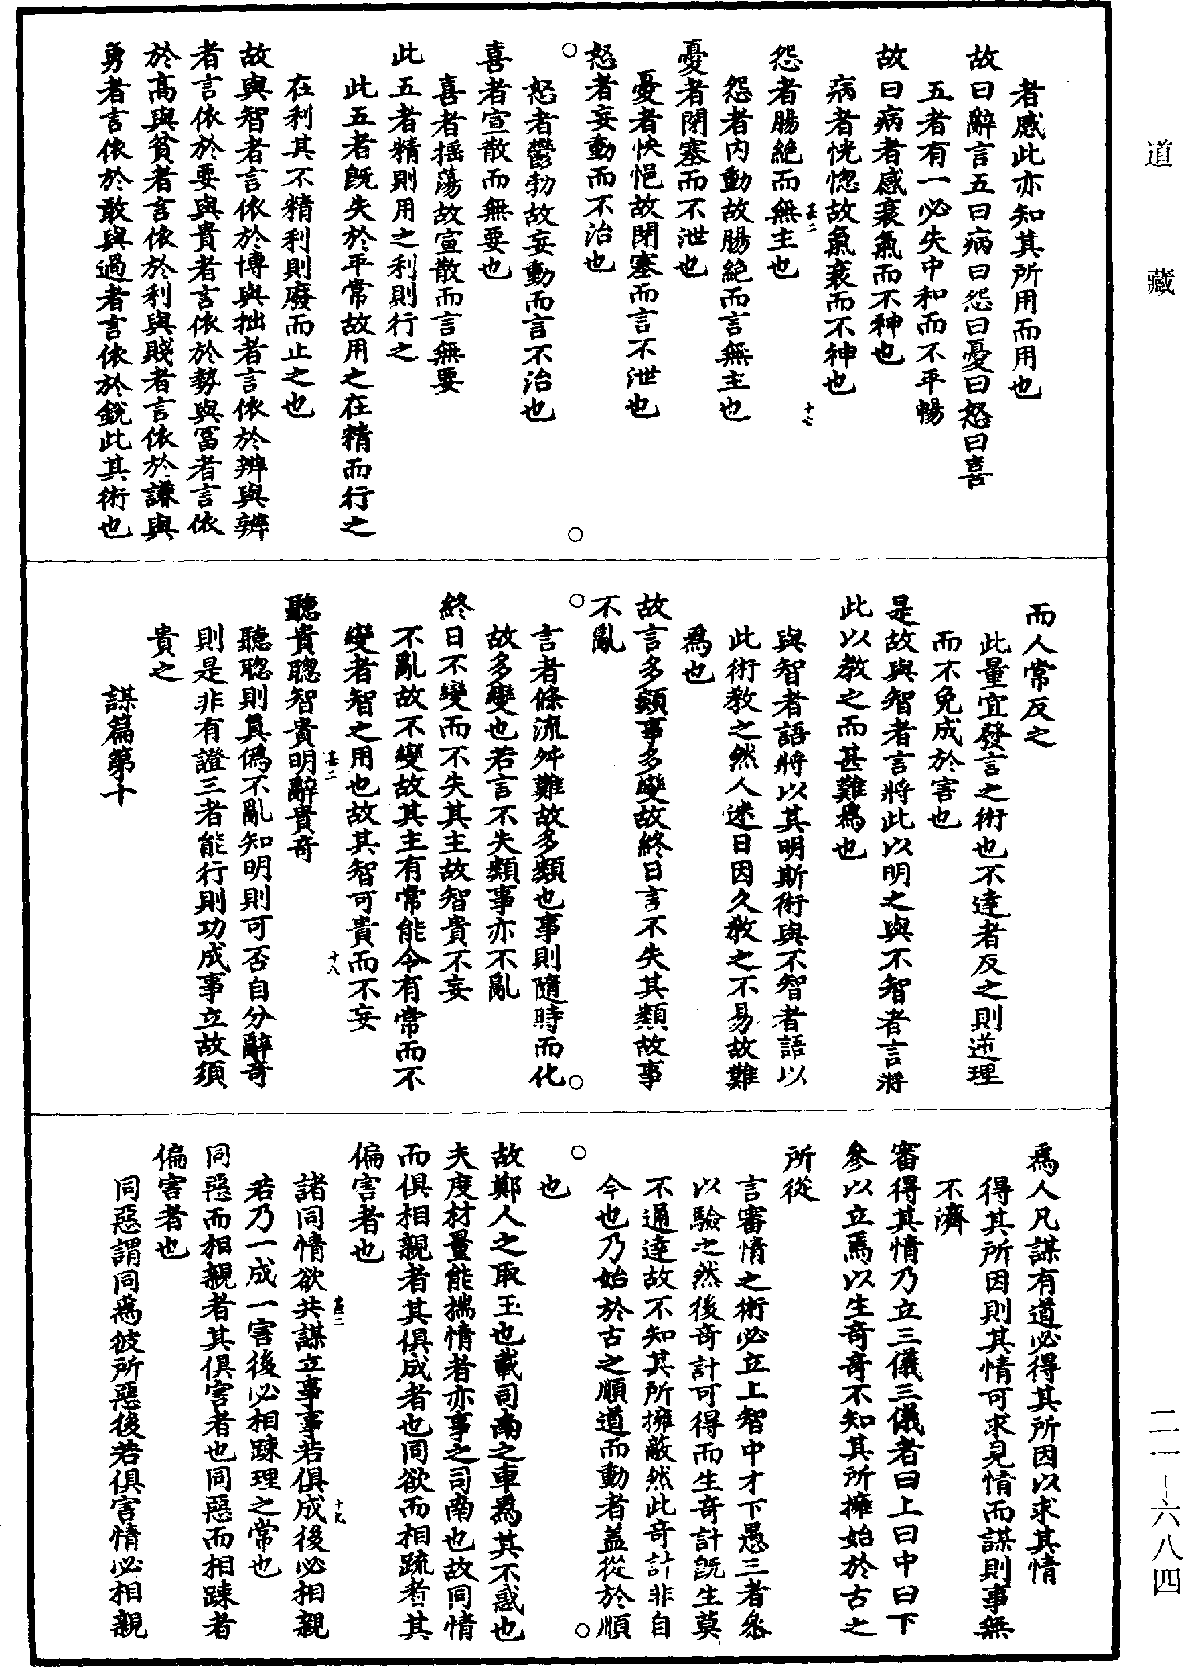 道藏
者感此亦知其所用而用也
故曰辭言五曰病曰怨曰憂曰怒曰喜
五者有一必失中和而不平暢
故曰病者感衰氣而不神也
病者恍惚故氣衰而不神也
怨者腸絕而無主也
怨者內動故腸絕而言無主也
憂者閉塞而不泄也
憂者怏悒故閉塞而言不泄也
怒者妄動而不治也
怒者鬱勃故妄動而言不治也
喜者宣散而無要也
喜者搖蕩故宣散而言無要
此五者精則用之利則行之
此五者既失於平常故用之在精而行之
在利其不精利則廢而止之也
故與智者言依於博與拙者言依於辨與辨
者言依於要與貴者言依於勢與冨者言依
於高與貧者言依於利與賤者言依於謙與
勇者言依於敢與過者言依於銳此其術也
十七
而人常反之
此量宜發言之術也不達者反之則逆理
而不免成於害也
是故與智者言將此以明之與不智者言將
此以教之而甚難為也
與智者語將以其明斯術與不智者語以
此術教之然人迷日因久教之不易故難
為也
故言多類事多變故終日言不失其類故事
不亂
言者條流舛難故多類也事則隨時而化
故多變也若言不失類事亦不亂
終日不變而不失其主故智貴不妄
不亂故不變故其主有常能令有常而不
變者智之用也故其智可貴而不妄
聽貴聰智貴明辭貴奇
十八
聽聰則真偽不亂知明則可否自分辭奇
則是非有證三者能行則功成事立故須
貴之
謀篇第十
為人凡謀有道必得其所因以求其情
得其所因則其情可求見情而謀則事無
不濟
審得其情乃立三儀三儀者曰上曰中曰下
參以立焉以生奇奇不知其所擁始於古之
所從
言審情之術必立上智中才下愚三者參
以驗之然後奇計可得而生奇計既生莫
不通達故不知其所擁蔽然此奇計非自
今也乃始於古之順道而動者蓋從於順
也
故鄭人之取玉也載司南之車為其不惑也
夫度材量能揣情者亦事之司南也故同情
而俱相親者其俱成者也同欲而相疏者其
偏害者也
諸同情欲共謀立事事若俱成後必相親
十九
若乃一成一害後必相踈理之常也
同惡而相親者其俱害者也同惡而相踈者
偏害者也
同惡謂同為彼所惡後若俱害情必相親
二一-六八四